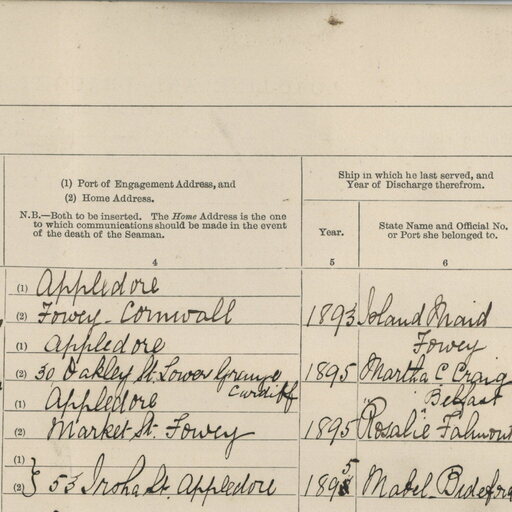 (1) Port of Engagement Address, and
(2) Home Address.
N.B.—Both to be inserted. The Home Address is the one
to which communications should be made in the event
of the death of the Seaman.
4
Ship in which he last served, and
Year of Discharge therefrom.
Year.
5
State Name and Official No.
or Port she belonged to.
6
(1) Appledore
(2) Fowey. Cornwall 1893 Island Maid
Fowey
(1) Appledore
(2) 30 Oakley St. Lower Grange 1895 Martha C Craig
Cardiff Belfast
(1) Appledore
(2) Market St. Fowey 1895 Rosalie Falmout
(1)
(2) } 53 Irsha St. Appledore 1895 Mabel. Bidefor